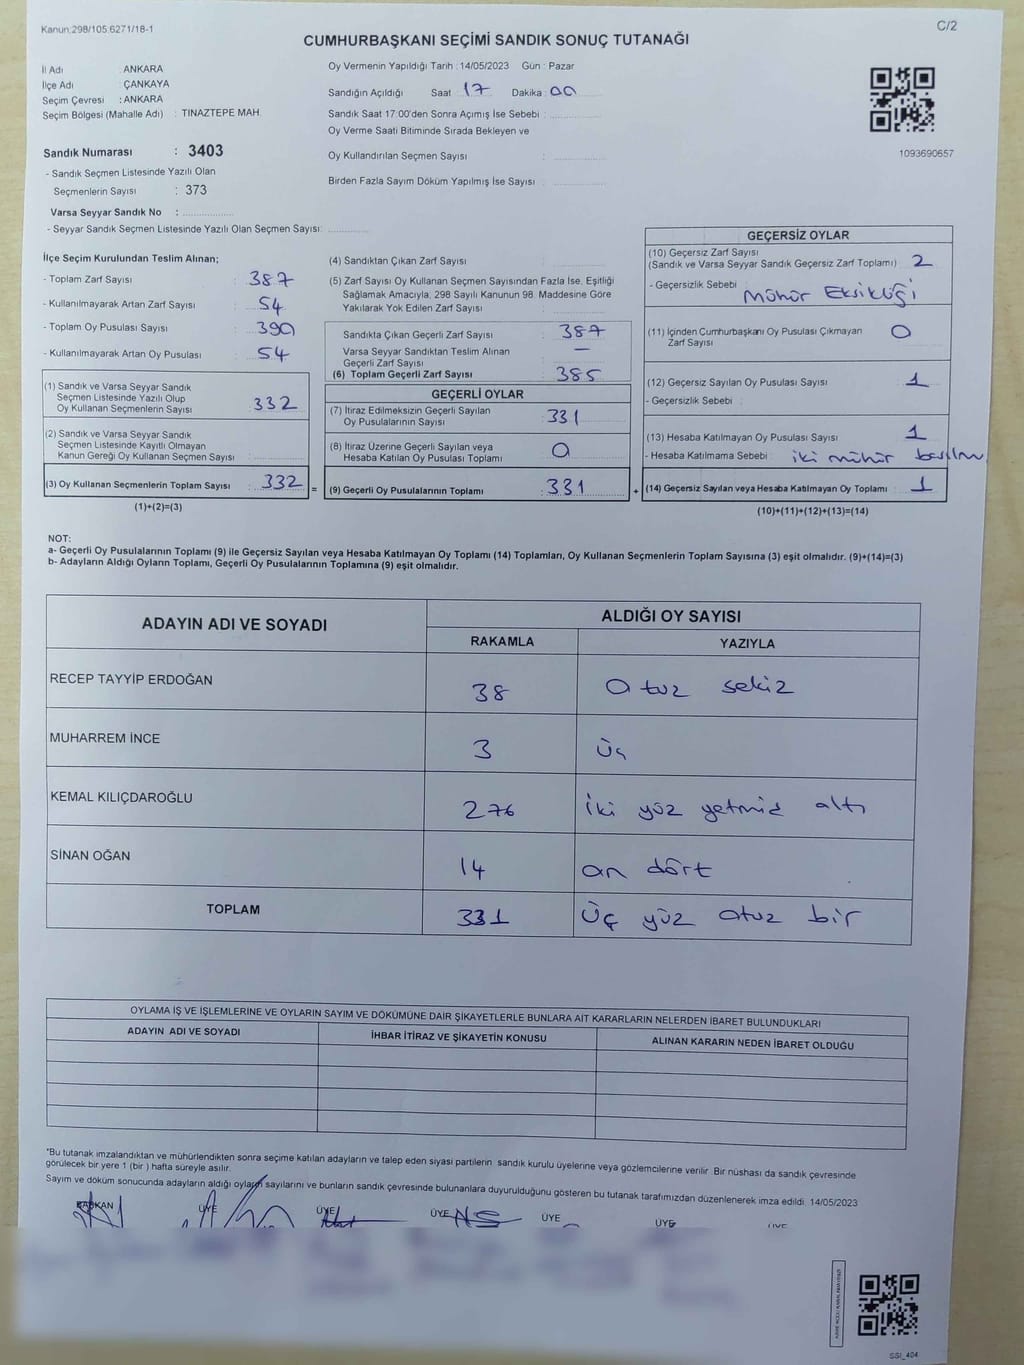 Kanun:298/105,6271/18-1
C/2
CUMHURBAŞKANI SEÇİMİ SANDIK SONUÇ TUTANAĞI
İl Adı : ANKARA
İlçe Adı : ÇANKAYA
Seçim Çevresi : ANKARA
Seçim Bölgesi (Mahalle Adı) : TINAZTEPE MAH.
Sandık Numarası : 3403
- Sandık Seçmen Listesinde Yazılı Olan
Seçmenlerin Sayısı : 373
Varsa Seyyar Sandık No :
- Seyyar Sandık Seçmen Listesinde Yazılı Olan Seçmen Sayısı:
Oy Vermenin Yapıldığı Tarih : 14/05/2023 Gün : Pazar
Sandığın Açıldığı Saat 17 Dakika : 00
Sandık Saat 17:00'den Sonra Açımış İse Sebebi :
Oy Verme Saati Bitiminde Sırada Bekleyen ve
Oy Kullandırılan Seçmen Sayısı :
Birden Fazla Sayım Döküm Yapılmış İse Sayısı :
1093690657
İlçe Seçim Kurulundan Teslim Alınan;
- Toplam Zarf Sayısı : 387
- Kullanılmayarak Artan Zarf Sayısı : 54
- Toplam Oy Pusulası Sayısı : 390
- Kullanılmayarak Artan Oy Pusulası : 54
(1) Sandık ve Varsa Seyyar Sandık
Seçmen Listesinde Yazılı Olup
Oy Kullanan Seçmenlerin Sayısı : 332
(2) Sandık ve Varsa Seyyar Sandık
Seçmen Listesinde Kayıtlı Olmayan
Kanun Gereği Oy Kullanan Seçmen Sayısı :
(3) Oy Kullanan Seçmenlerin Toplam Sayısı : 332 =
(1)+(2)=(3)
(4) Sandıktan Çıkan Zarf Sayısı :
(5) Zarf Sayısı Oy Kullanan Seçmen Sayısından Fazla İse, Eşitliği
Sağlamak Amacıyla; 298 Sayılı Kanunun 98. Maddesine Göre
Yakılarak Yok Edilen Zarf Sayısı :
Sandıkta Çıkan Geçerli Zarf Sayısı : 387
Varsa Seyyar Sandıktan Teslim Alınan
Geçerli Zarf Sayısı : —
(6) Toplam Geçerli Zarf Sayısı : 385
GEÇERLİ OYLAR
(7) İtiraz Edilmeksizin Geçerli Sayılan
Oy Pusulalarının Sayısı : 331
(8) İtiraz Üzerine Geçerli Sayılan veya
Hesaba Katılan Oy Pusulası Toplamı : 0
(9) Geçerli Oy Pusulalarının Toplamı : 331 +
GEÇERSİZ OYLAR
(10) Geçersiz Zarf Sayısı
(Sandık ve Varsa Seyyar Sandık Geçersiz Zarf Toplamı) : 2
- Geçersizlik Sebebi : Mühür Eksikliği
(11) İçinden Cumhurbaşkanı Oy Pusulası Çıkmayan
Zarf Sayısı : 0
(12) Geçersiz Sayılan Oy Pusulası Sayısı : 1
- Geçersizlik Sebebi :
(13) Hesaba Katılmayan Oy Pusulası Sayısı : 1
- Hesaba Katılmama Sebebi : iki mühür
(14) Geçersiz Sayılan veya Hesaba Katılmayan Oy Toplamı : 1
(10)+(11)+(12)+(13)=(14)
NOT:
a- Geçerli Oy Pusulalarının Toplamı (9) ile Geçersiz Sayılan veya Hesaba Katılmayan Oy Toplamı (14) Toplamları, Oy Kullanan Seçmenlerin Toplam Sayısına (3) eşit olmalıdır. (9)+(14)=(3)
b- Adayların Aldığı Oyların Toplamı, Geçerli Oy Pusulalarının Toplamına (9) eşit olmalıdır.
ADAYIN ADI VE SOYADI
ALDIĞI OY SAYISI
RAKAMLA YAZIYLA
RECEP TAYYİP ERDOĞAN 38 otuz sekiz
MUHARREM İNCE 3 üç
KEMAL KILIÇDAROĞLU 276 iki yüz yetmiş altı
SİNAN OĞAN 14 on dört
TOPLAM 331 üç yüz otuz bir
OYLAMA İŞ VE İŞLEMLERİNE VE OYLARIN SAYIM VE DÖKÜMÜNE DAİR ŞİKAYETLERLE BUNLARA AİT KARARLARIN NELERDEN İBARET BULUNDUKLARI
ADAYIN ADI VE SOYADI İHBAR İTİRAZ VE ŞİKAYETİN KONUSU ALINAN KARARIN NEDEN İBARET OLDUĞU
*Bu tutanak imzalandıktan ve mühürlendikten sonra seçime katılan adayların ve talep eden siyasi partilerin sandık kurulu üyelerine veya gözlemcilerine verilir. Bir nüshası da sandık çevresinde
görülecek bir yere 1 (bir ) hafta süreyle asılır.
Sayım ve döküm sonucunda adayların aldığı oyların sayılarını ve bunların sandık çevresinde bulunanlara duyurulduğunu gösteren bu tutanak tarafımızdan düzenlenerek imza edildi. 14/05/2023
BAŞKAN ÜYE ÜYE ÜYE ÜYE ÜYE ÜYE
SSI_404